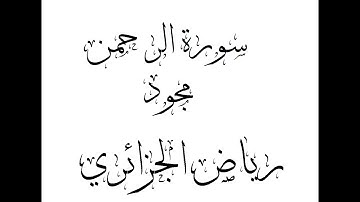 سورة الرحمن
مجود
رياض الجزائري